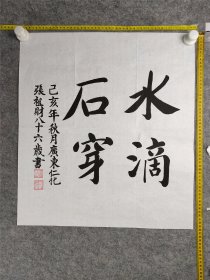 水滴
石穿
己亥年秋月廣東仁化
張祖財八十六歲書